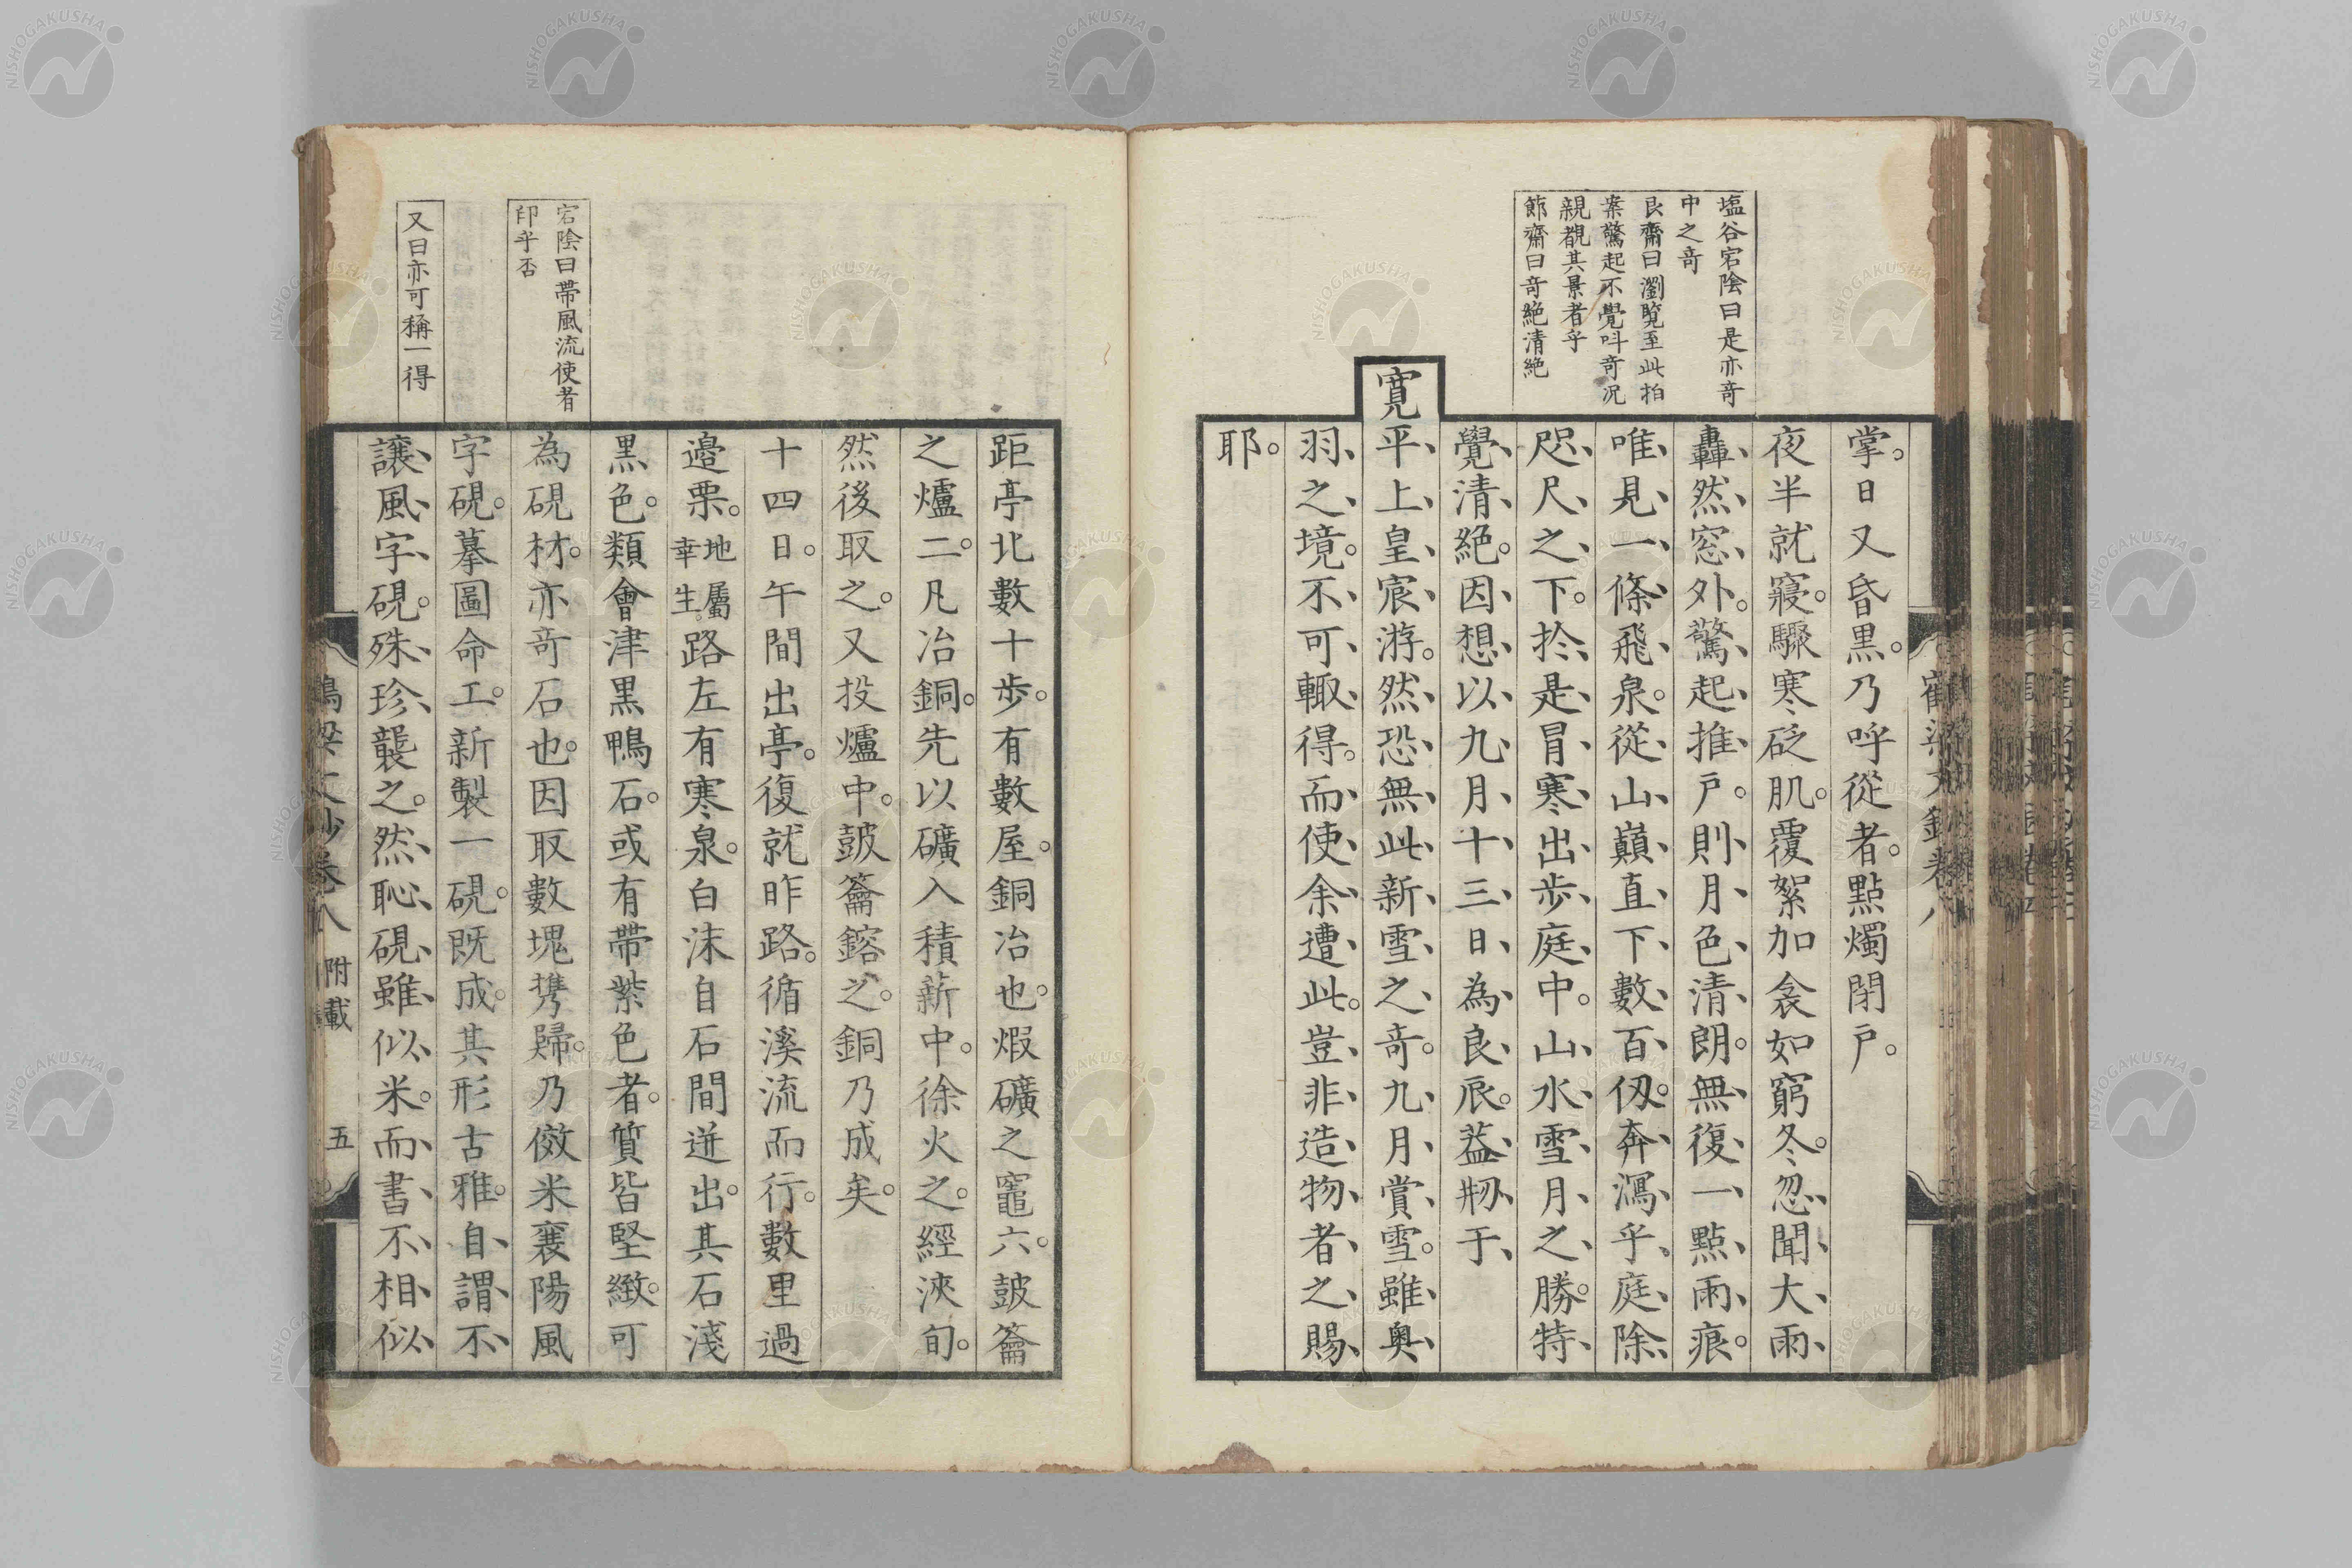 塩谷宕陰曰是亦奇
中之奇
艮齋曰瀏覧至此拍
案驚起不覺呌奇况
親覩其景者乎
節齋曰奇絶清絶
掌。日又昏黒。乃呼從者。點燭閉戸。
夜半就寢。驟寒砭肌。覆絮加衾如窮冬。忽聞大雨
轟然窓外。驚起推戸。則月色清朗。無復一點雨痕。
唯見一條飛泉。從山巓直下數百仭。奔瀉乎庭除
咫尺之下。於是冒寒出步庭中。山水雪月之勝。特
覺清絶。因想以九月十三日為良辰。葢刱于
寛平上皇宸游。然恐無此新雪之奇。九月賞雪。雖奥
羽之境。不可輙得。而使余遭此。豈非造物者之賜
耶。
宕陰曰帶風流使者
印乎否
又曰亦可稱一得
距亭北數十步。有數屋。銅冶也。煆礦之竈六。鼓籥
之爐二。凡冶銅。先以礦入積薪中。徐火之。經浹旬。
然後取之。又投爐中。鼓籥鎔之。銅乃成矣。
十四日。午間出亭。復就昨路。循溪流而行。數里過
邉栗。地屬幸生。路左有寒泉。白沫自石間迸出。其石淺
黒色。類會津黒鴨石。或有帶紫色者。質皆堅緻。可
為硯材。亦奇石也。因取數塊携歸。乃倣米襄陽風
字硯。摹圖命工。新製一硯。既成。其形古雅。自謂不
讓風字硯。殊珍襲之。然恥硯雖似米。而書不相似
鶴梁文鈔卷八　附載　五